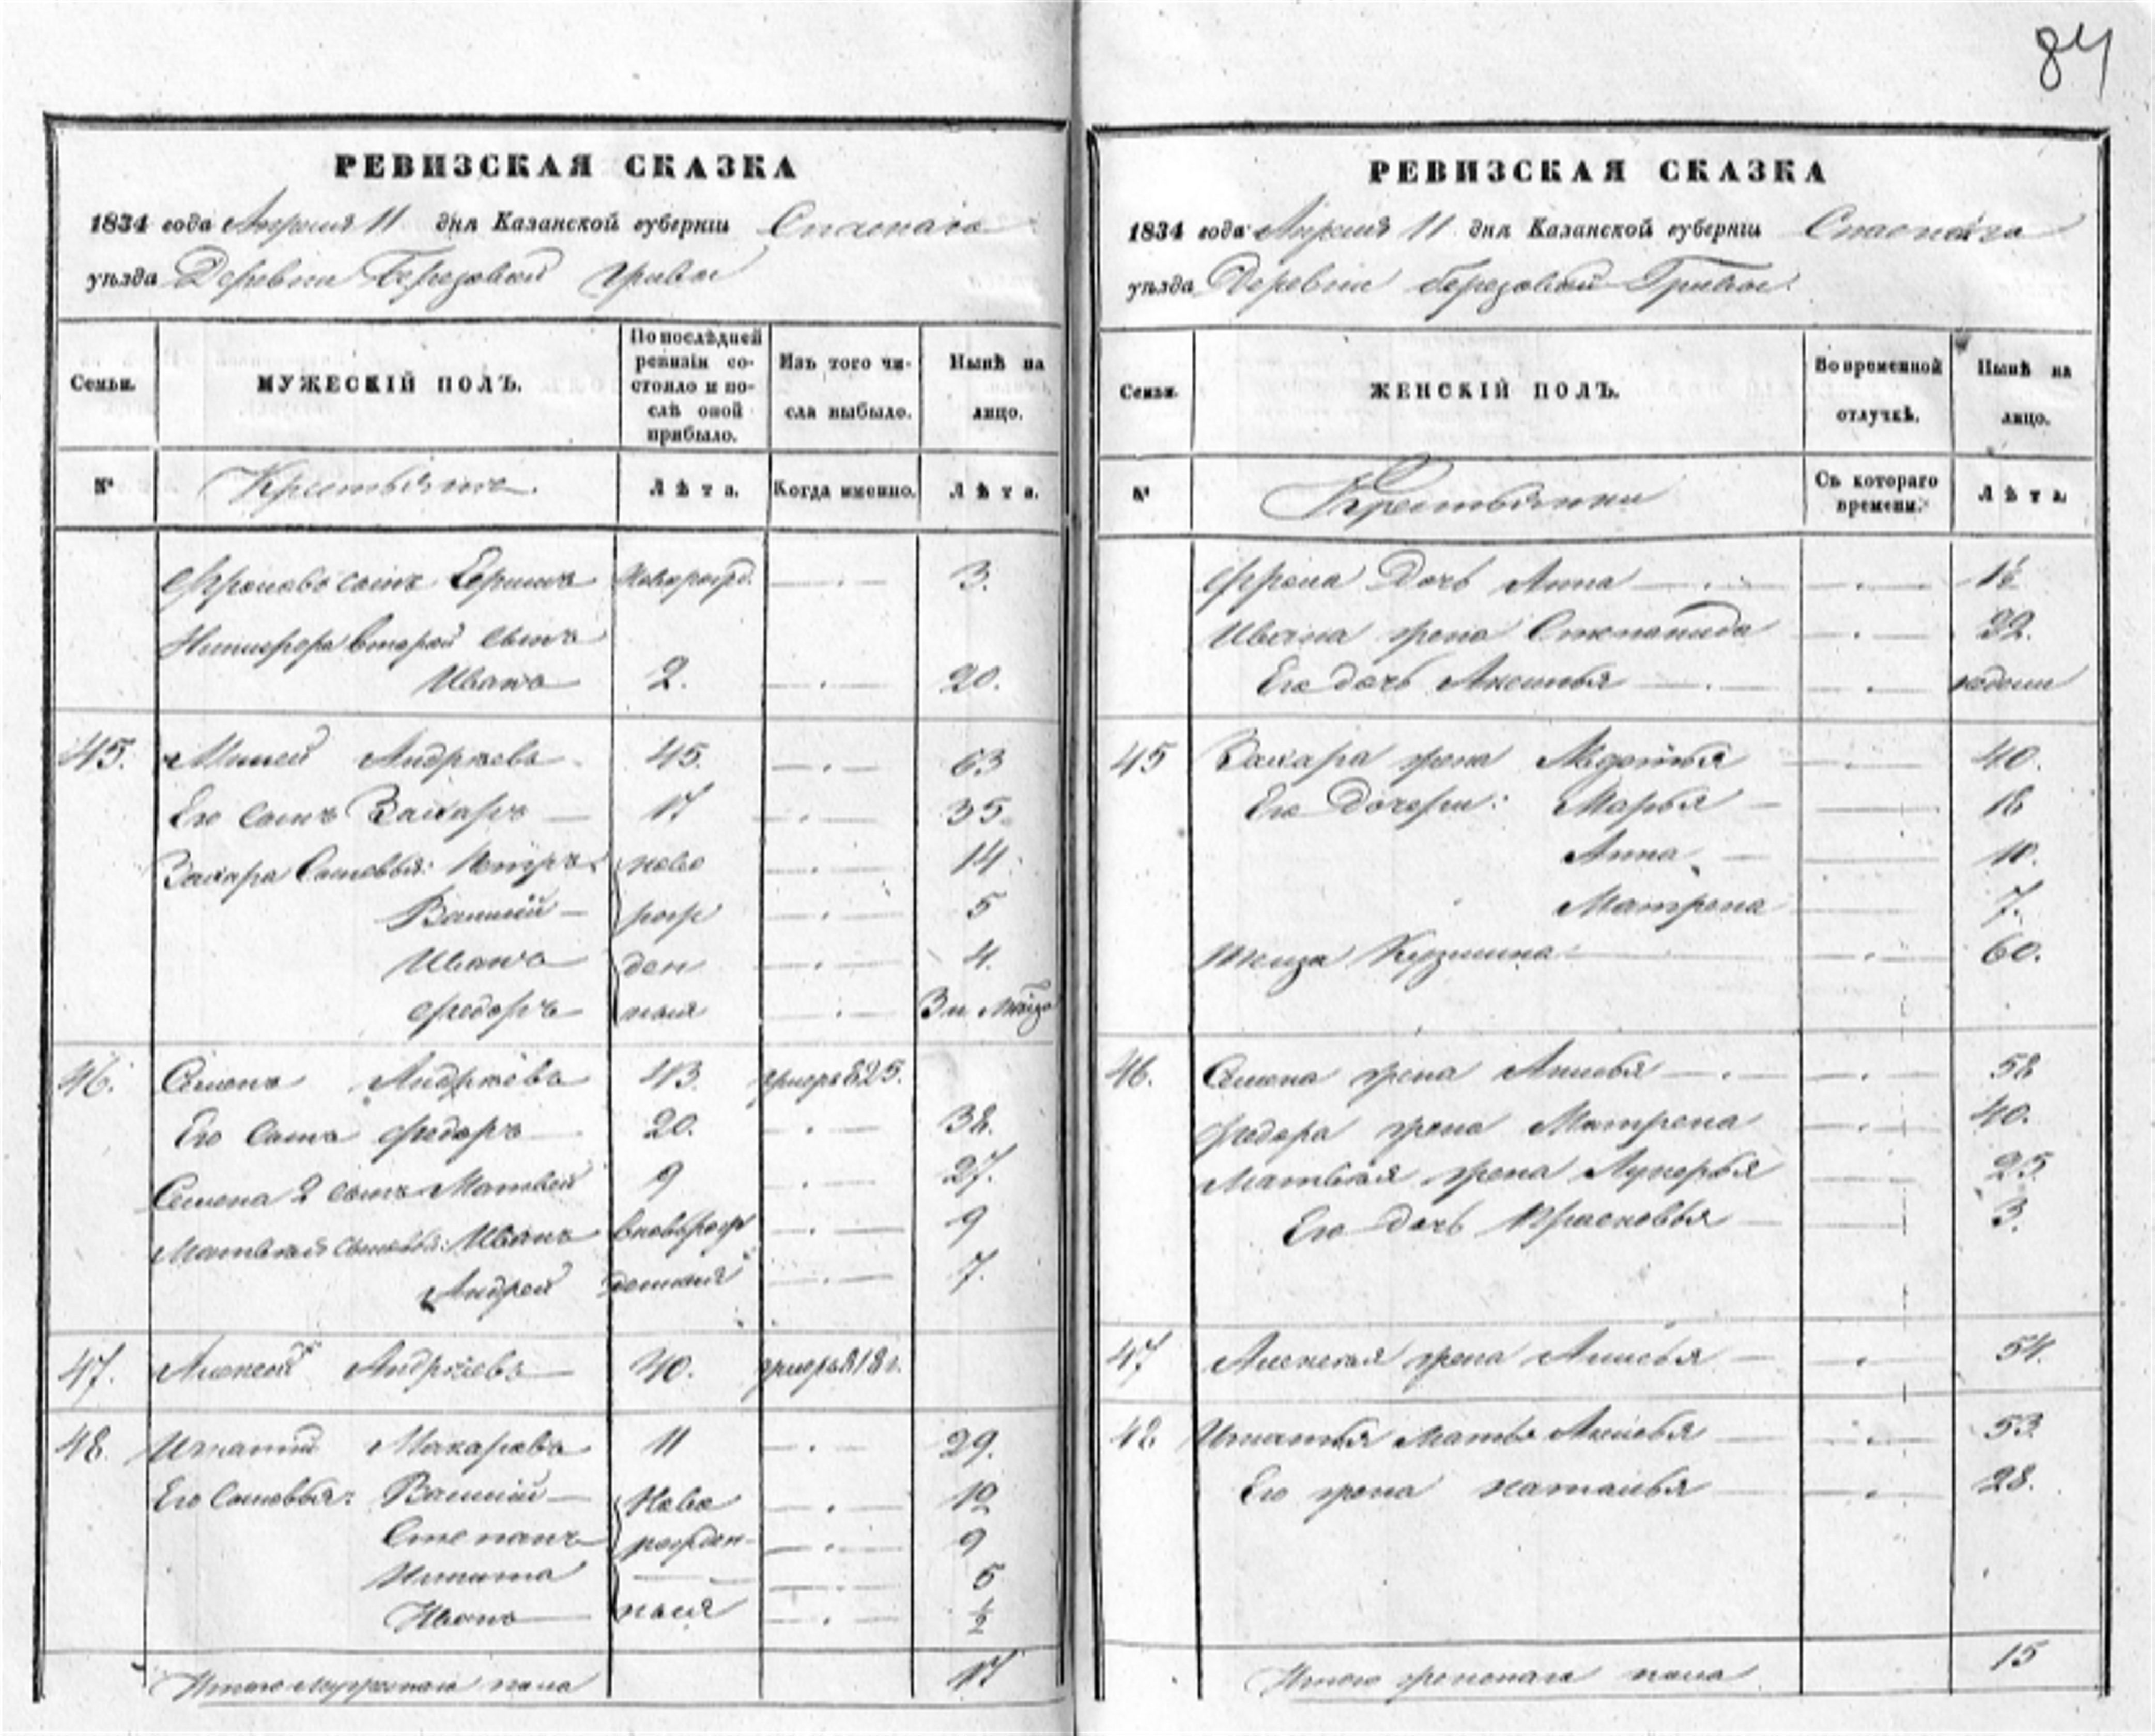 84
РЕВИЗСКАЯ СКАЗКА
1834 года Апреля 11 дня Казанской губернии Спаскаго
уѣзда Деревни Березовой гривы
Семьи. МУЖЕСКІЙ ПОЛЪ. По послѣдней ревизіи состояло и послѣ оной прибыло. Изъ того числа выбыло. Нынѣ на лицо.
№ Крестьяне. Лѣта. Когда именно. Лѣта.
Фролавъ сынъ 3.
второй сынъ
Иванъ 2. 20.
45. Андрѣевъ 45. 63
Его сынъ Захаръ 17 35
Захара сыновья: Петръ ново 14
Василий рож 5
Иванъ ден 4.
Федоръ ныя 3 и
46. Семенъ Андрѣевъ 43. умеръ 825.
Его сынъ Федоръ 20. 38.
Семена 2 сынъ Матвей 9 27.
Матвѣя сыновья: Иванъ вновь рож 9
Андрей денныя 7.
47. Алексей Андрѣевъ 40. умеръ
48. Игнатий Макаровъ 11 29.
Его сыновья: Василий Ново 12
Степанъ рожден 9
Никита 6
Иванъ ныя ½
Итого мужескаго пола 17
РЕВИЗСКАЯ СКАЗКА
1834 года Апреля 11 дня Казанской губерніи Спаскаго
уѣзда Деревни березовой Гривы.
Семьи. ЖЕНСКІЙ ПОЛЪ. Во временной отлучкѣ. Нынѣ на лицо.
№ Крестьянки Съ котораго времени. Лѣта.
Фрола дочь Анна
Ивана жена Степанида 22.
Его дочь Аксинья
45 Захара жена Авдотья 40.
Его дочери: Марья 18
Анна 10.
Матрена 7.
Кузмина 60.
46. Семена жена Анисья 58
Федора жена Матрена 40.
Матвѣя жена Лукерья 25.
Его дочь Прасковья 3.
47 Алексея жена Анисья 54.
48 Игнатья мать Анисья 53.
Его жена Наталья 28.
Итого женскаго пола 15